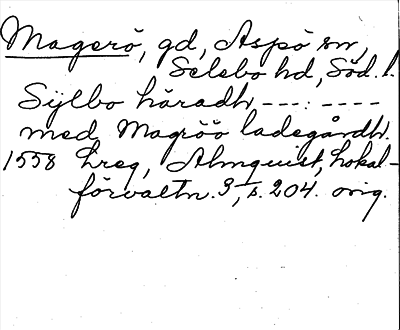 Magerö, gd, Aspö sn,
Selebo hd, Söd. l.
Sÿlbo häradh, ---: ----
med Magröö ladegårdh.
1558 Lreg, Almquist, Lokal-
förvaltn. 3, s. 204. orig.